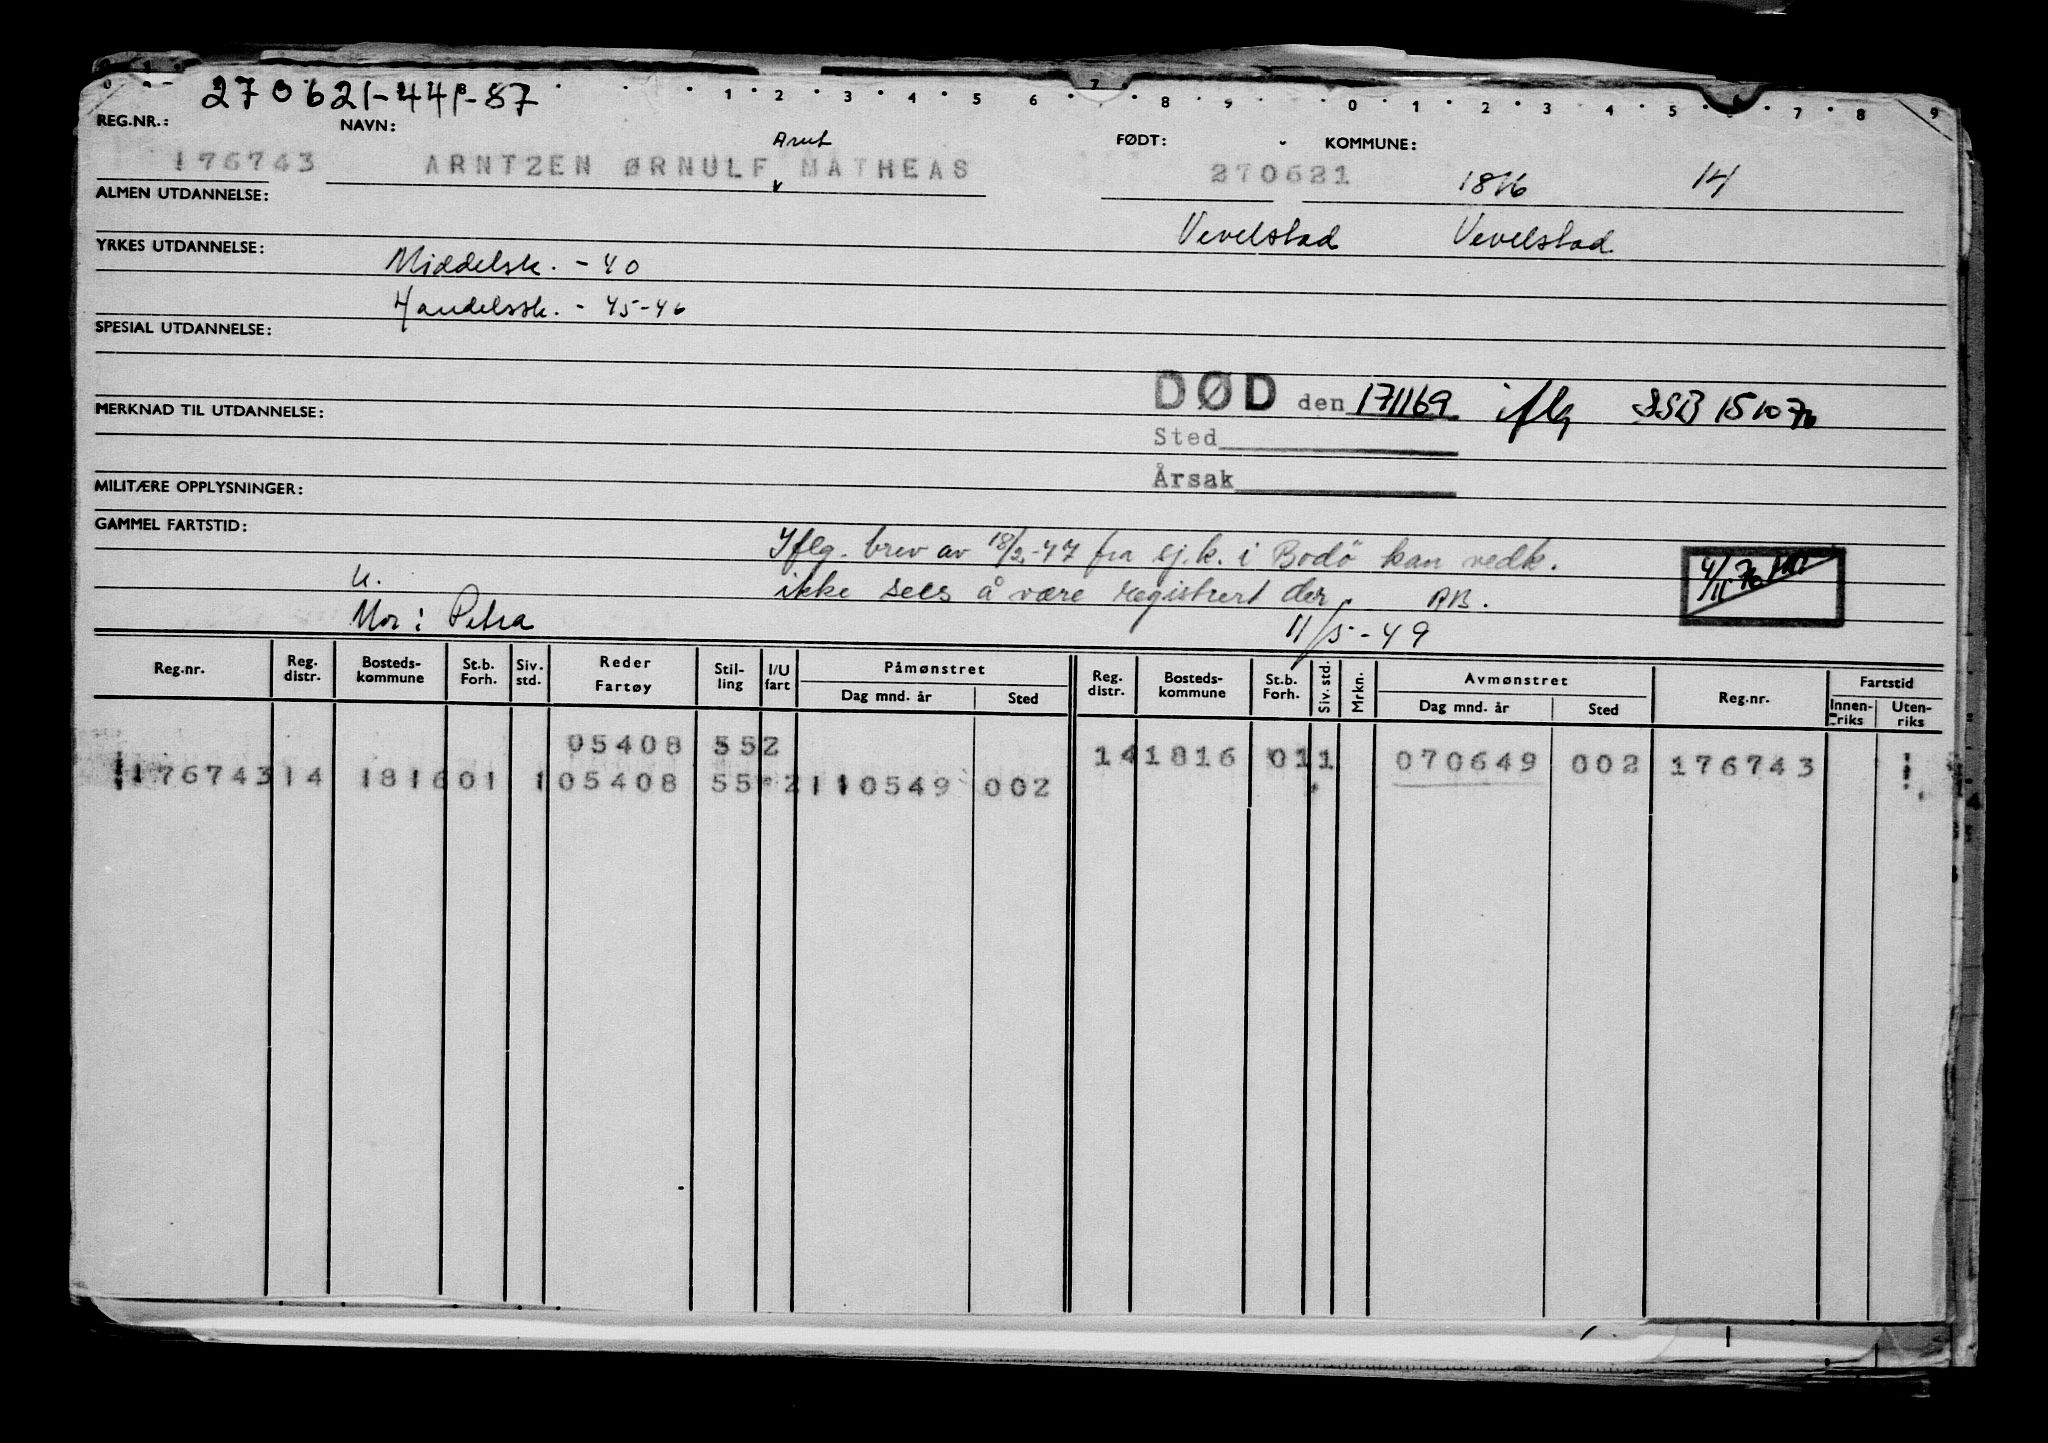 270621-441-87
1 2 3 4 5 6 7 8 9 0 1 2 3 4 5 6 7 8 9
REG.NR.: NAVN: FØDT: KOMMUNE:
Arnt
176743 ARNTZEN ØRNULF MATHEAS 270621 1816 14
ALMEN UTDANNELSE:
Vevelstad Vevelstad
YRKES UTDANNELSE:
Middelsk. - 40
Handelssk. - 45-46
SPESIAL UTDANNELSE:
DØD den 171169 iflg SSB 151070
MERKNAD TIL UTDANNELSE:
Sted
Årsak
MILITÆRE OPPLYSNINGER:
GAMMEL FARTSTID:
Iflg. brev av 18/2-47 fra sj.k. i Bodö kan vedk.
ikke sees å være registrert der. AB.
4/11 70
U.
Mor: Petra
11/5-49
Reg.nr. Reg. distr. Bosteds-kommune St.b. Forh. Siv. std. Reder Fartøy Stil-ling I/U fart Påmønstret Dag mnd. år Sted Reg. distr. Bosteds-kommune St.b. Forh. Siv. std. Mrkn. Avmønstret Dag mnd. år Sted Reg.nr. Fartstid Innen-riks Uten-riks
05408 552 14 1816 01 1 070649 002 176743 1
176743 14 1816 01 1 05408 55 2 110549 002